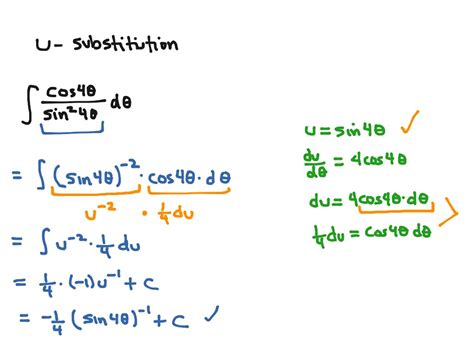 u - substitution
∫ cos4θ / sin²4θ dθ
= ∫ (sin4θ)⁻² · cos4θ · dθ
u⁻² · 1/4 du
= ∫ u⁻² · 1/4 du
= 1/4 · (-1)u⁻¹ + C
= -1/4 (sin4θ)⁻¹ + C ✓
u = sin4θ ✓
du/dθ = 4cos4θ
du = 4cos4θ·dθ
1/4 du = cos4θ dθ